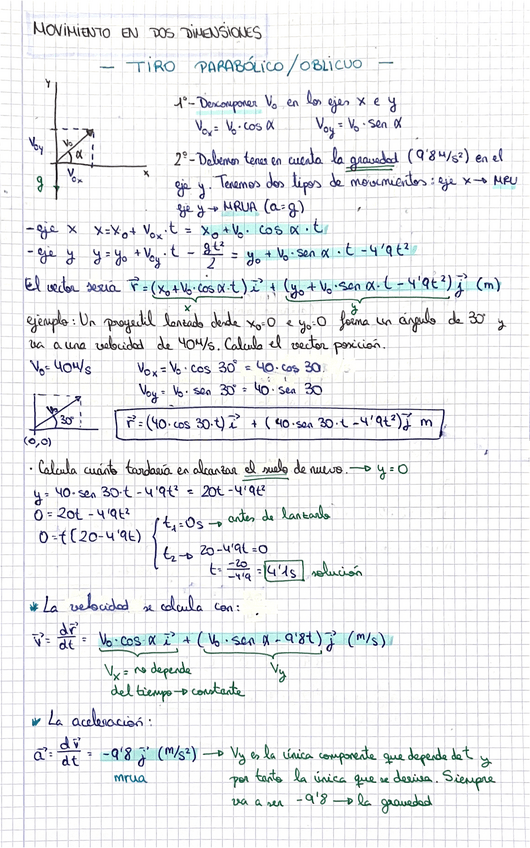 MOVIMIENTO EN DOS DIMENSIONES
- TIRO PARABÓLICO/OBLICUO -
Y
V₀y
V₀
α
V₀x
x
g
1º- Descomponer V₀ en los ejes x e y
V₀x = V₀·cos α V₀y = V₀·sen α
2º- Debemos tener en cuenta la gravedad (9'8 m/s²) en el
eje y. Tenemos dos tipos de movimientos: eje x → MRU
eje y → MRUA (a=g)
-eje x x = x₀ + V₀x·t = x₀ + V₀·cos α·t
-eje y y = y₀ + V₀y·t - gt²/2 = y₀ + V₀·sen α·t - 4'9t²
El vector sería r⃗ = (x₀ + V₀·cos α·t) i⃗ + (y₀ + V₀·sen α·t - 4'9t²) j⃗ (m)
x y
ejemplo: Un proyectil lanzado desde x₀=0 e y₀=0 forma un ángulo de 30° y
va a una velocidad de 40 m/s. Calcula el vector posición.
V₀ = 40 m/s V₀x = V₀·cos 30° = 40·cos 30
V₀y = V₀·sen 30° = 40·sen 30
V₀
30°
(0,0)
r⃗ = (40·cos 30·t) i⃗ + (40·sen 30·t - 4'9t²) j⃗ m
· Calcula cuánto tardaría en alcanzar el suelo de nuevo. → y=0
y = 40·sen 30·t - 4'9t² = 20t - 4'9t²
0 = 20t - 4'9t²
0 = t(20 - 4'9t)
t₁ = 0s → antes de lanzarlo
t₂ → 20 - 4'9t = 0
t = -20/-4'9 = 4'1s solución
* La velocidad se calcula con:
v⃗ = dr⃗/dt = V₀·cos α i⃗ + (V₀·sen α - 9'8t) j⃗ (m/s)
Vx = no depende
del tiempo → constante
Vy
* La aceleración:
a⃗ = dv⃗/dt = -9'8 j⃗ (m/s²) → Vy es la única componente que depende de t y
mrua
por tanto la única que se deriva. Siempre
va a ser -9'8 → la gravedad